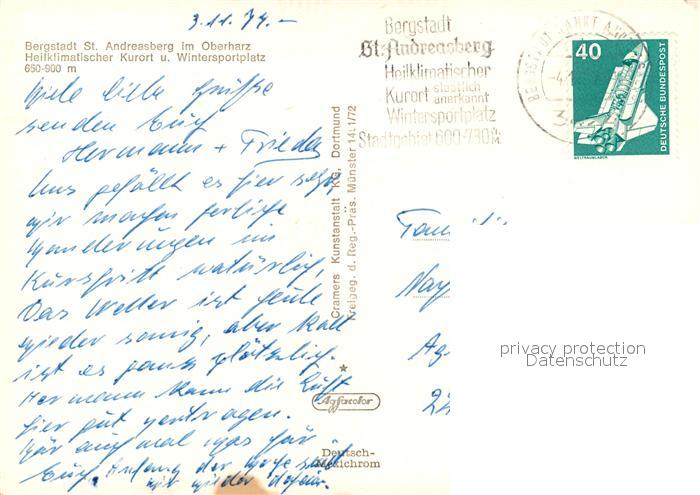 3.11.79.-
Bergstadt St. Andreasberg im Oberharz
Heilklimatischer Kurort u. Wintersportplatz
650-900 m
Viele liebe Grüße
senden Euch
Hermann + Frieda
Uns gefällt es hier sehr
wir machen herliche
Wanderungen im
Kurschritt natürlich,
Das Wetter ist heute
wieder sonnig, aber kalt
ist es ganz plötzlich.
Hermann kann die Luft
hier gut vertragen.
Wär auch mal was für
Euch. Anfang der Woche sind
wir wieder daheim.
Cramers Kunstanstalt KG, Dortmund
Freigeg. d. Reg.-Präs. Münster 14:1/72
Agfacolor
Deutsch-
Mexichrom
Bergstadt
St. Andreasberg
Heilklimatischer
Kurort staatlich anerkannt
Wintersportplatz
Stadtgebiet 600-730 m
40
DEUTSCHE BUNDESPOST
WELTRAUMLABOR
privacy protection
Datenschutz